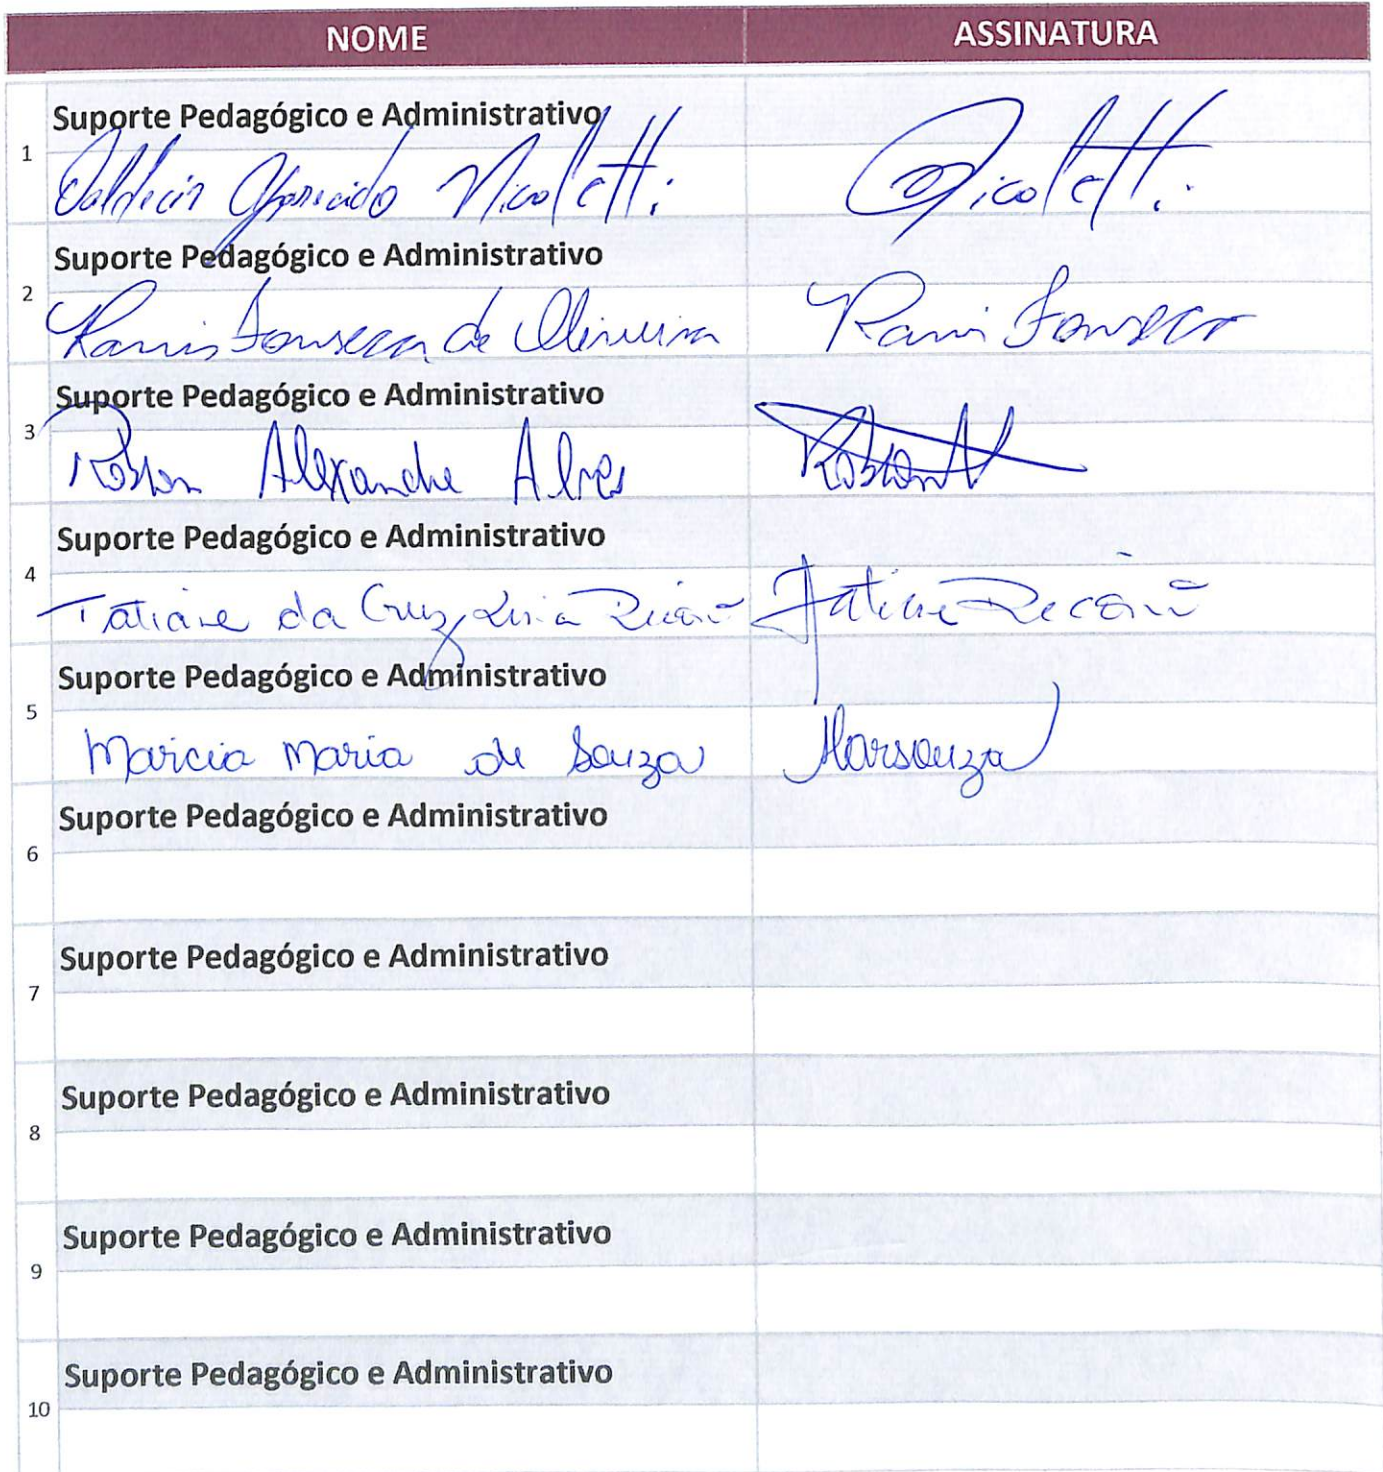 NOME ASSINATURA
Suporte Pedagógico e Administrativo
1
Valdecir Aparecido Nicoletti. Nicoletti.
Suporte Pedagógico e Administrativo
2
Fonseca de Oliveira Fonseca
Suporte Pedagógico e Administrativo
3
Robson Alexandre Alves
Suporte Pedagógico e Administrativo
4
Tatiane da Cruz Tatiane
Suporte Pedagógico e Administrativo
5
Marcia Maria de Souza Marsouza
Suporte Pedagógico e Administrativo
6
Suporte Pedagógico e Administrativo
7
Suporte Pedagógico e Administrativo
8
Suporte Pedagógico e Administrativo
9
Suporte Pedagógico e Administrativo
10